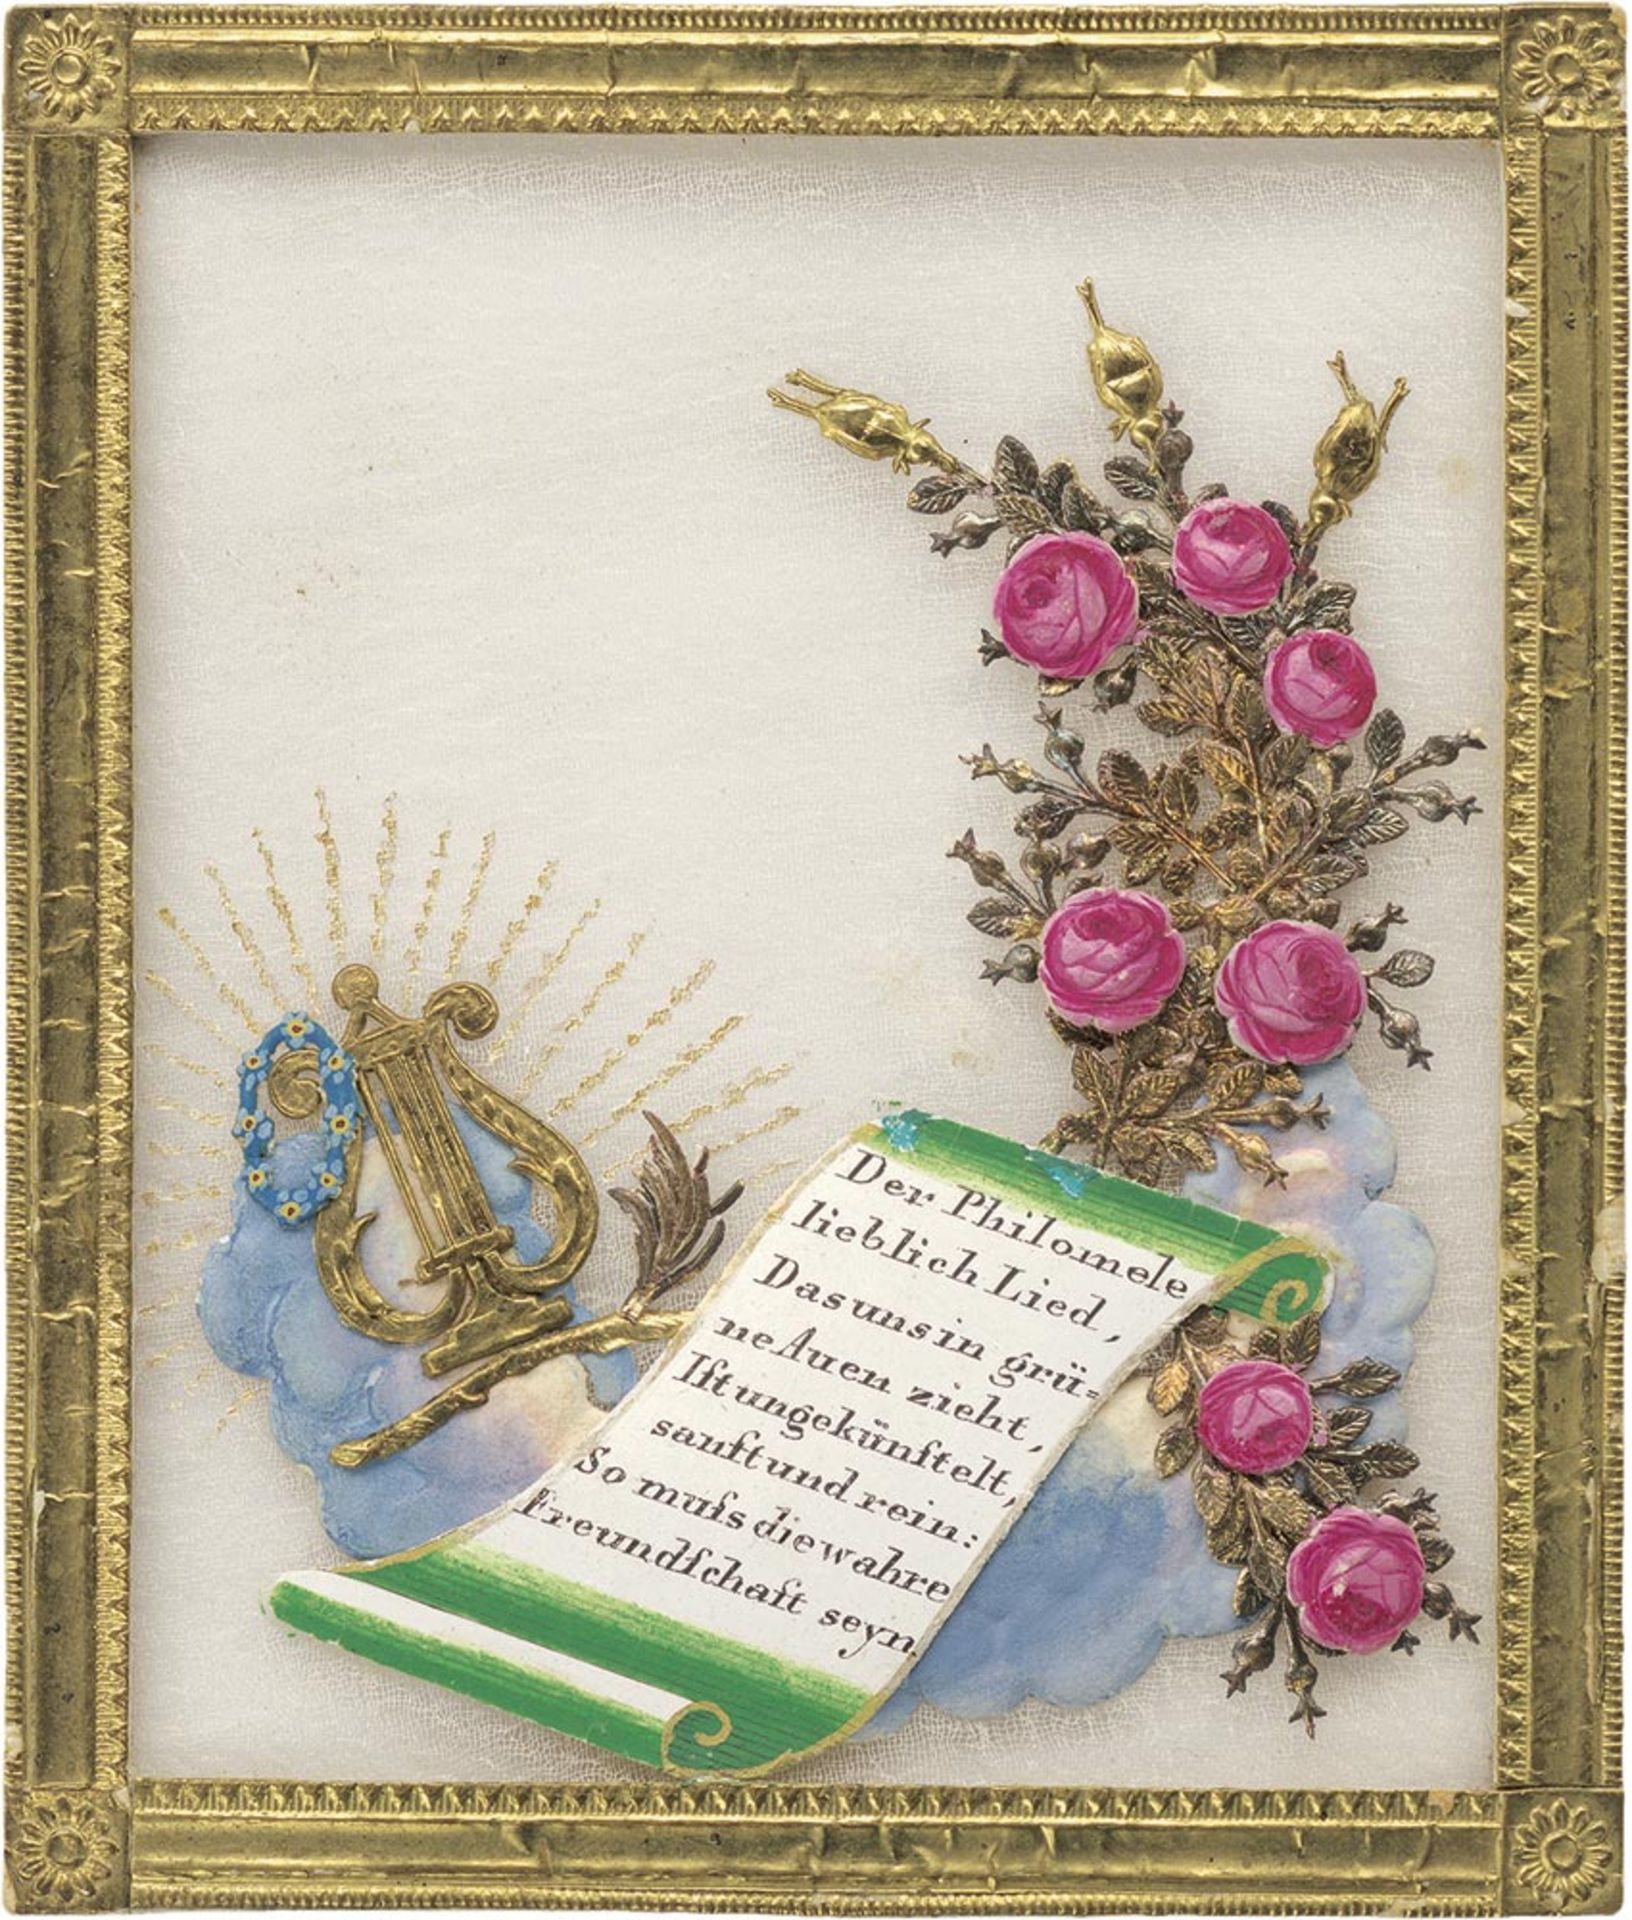 Der Philomele
lieblich Lied,
Das uns in grü=
ne Auen zieht,
Iſt ungekünſtelt,
sanft und rein:
So muſs die wahre
Freundſchaft seyn.